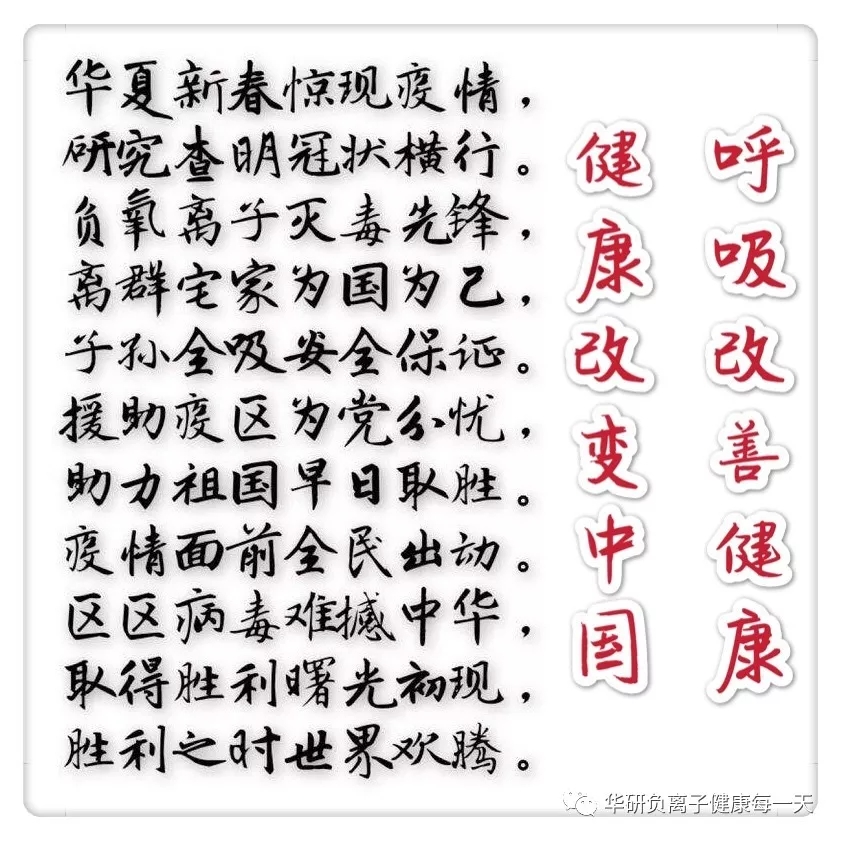 华夏新春惊现疫情，
研究查明冠状横行。
负氧离子灭毒先锋，
离群宅家为国为己，
子孙全吸安全保证。
援助疫区为党分忧，
助力祖国早日取胜。
疫情面前全民出动。
区区病毒难撼中华，
取得胜利曙光初现，
胜利之时世界欢腾。
呼吸改善健康
健康改变中国
华研负离子健康每一天